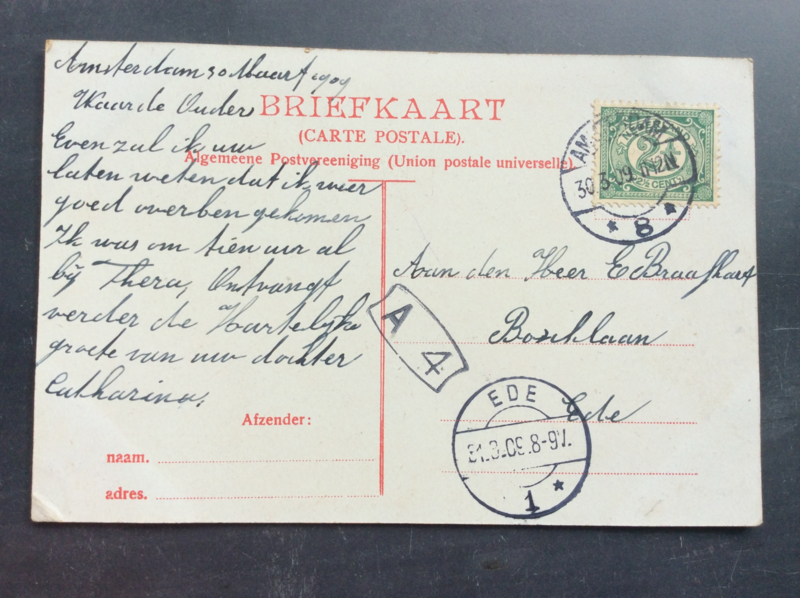 Amsterdam 30 Maart 1909
Waarde Ouder
Even zal ik uw
laten weten dat ik weer
goed overben gekomen
Ik was om tien uur al
bij Thera, Ontvangt
verder de Hartelijke
groete van uw dochter
Catharina.
BRIEFKAART
(CARTE POSTALE).
Algemeene Postvereeniging (Union postale universelle)
Afzender:
naam.
adres.
30.3.09
8
2½ CENT
Aan den Heer E Braafhart
Ede
A 4
EDE
31.3.09.8-9V.
1